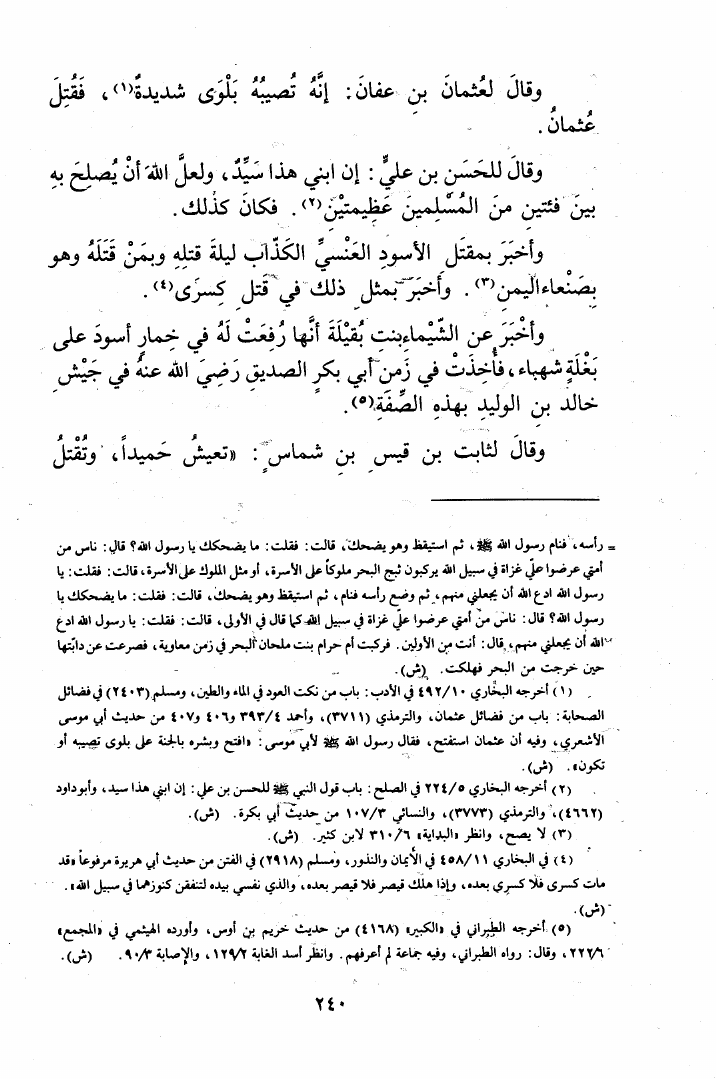 وقالَ لعُثمانَ بنِ عفانَ: إنَّهُ تُصيبُهُ بَلْوَى شديدةٌ(١)، فَقُتِلَ
عُثمانُ.
وقالَ للحَسَنِ بن عليٍّ: إن ابني هذا سَيِّدٌ، ولعلَّ اللهَ أنْ يُصلِحَ بهِ
بينَ فئتينِ منَ المُسْلِمينَ عَظِيمتيْنِ(٢). فكانَ كذٰلك.
وأخبَرَ بمقتَلِ الأسودِ العَنْسيِّ الكَذّابِ ليلةَ قتلِهِ وبمَنْ قَتَلَهُ وهو
بِصَنْعاءِاليمنِ(٣). وأخبَرَ بمثلِ ذلك في قَتلِ كِسرَى(٤).
وأخْبَرَ عن الشّيْماءِبنتِ بُقيْلَةَ أنَّها رُفِعَتْ لَهُ في خِمارٍ أسودَ على
بَغْلَةٍ شهباء، فأُخِذَتْ في زَمنِ أبي بكرٍ الصديقِ رَضِيَ الله عنهُ في جَيْشِ
خالد بنِ الوليدِ بهذهِ الصِّفَةِ(٥).
وقالَ لثابت بن قيسِ بنِ شماسٍ: «تعيشُ حَميداً، وتُقْتلُ
= رأسه، فنام رسول الله ﷺ، ثم استيقظ وهو يضحك، قالت: فقلت: ما يضحكك يا رسول الله؟ قال: ناس من
أمتي عرضوا عليّ غزاة في سبيل الله يركبون ثبج البحر ملوكاً على الأسرة، أو مثل الملوك على الأسرة، قالت: فقلت: يا
رسول الله ادع الله أن يجعلني منهم، ثم وضع رأسه فنام، ثم استيقظ وهو يضحك، قالت: فقلت: ما يضحكك يا
رسول الله؟ قال: ناس من أمتي عرضوا عليّ غزاة في سبيل الله كما قال في الأولى، قالت: فقلت: يا رسول الله ادع
الله أن يجعلني منهم، قال: أنت من الأولين. فركبت أم حرام بنت ملحان البحر في زمن معاوية، فصرعت عن دابّتها
حين خرجت من البحر فهلكت. (ش).
(١) أخرجه البخاري ٤٩٢/١٠ في الأدب: باب من نكت العود في الماء والطين، ومسلم (٢٤٠٣) في فضائل
الصحابة: باب من فضائل عثمان، والترمذي (٣٧١١)، وأحمد ٣٩٣/٤ و٤٠٦ و٤٠٧ من حديث أبي موسى
الأشعري، وفيه أن عثمان استفتح، فقال رسول الله ﷺ لأبي موسى: «افتح وبشره بالجنة على بلوى تصيبه أو
تكون». (ش).
(٢) أخرجه البخاري ٢٢٤/٥ في الصلح: باب قول النبي ﷺ للحسن بن علي: إن ابني هذا سيد، وأبوداود
(٤٦٦٢)، والترمذي (٣٧٧٣)، والنسائي ١٠٧/٣ من حديث أبي بكرة. (ش).
(٣) لا يصح، وانظر «البداية» ٣١٠/٦ لابن كثير. (ش).
(٤) في البخاري ٤٥٨/١١ في الأيمان والنذور، ومسلم (٢٩١٨) في الفتن من حديث أبي هريرة مرفوعاً «قد
مات كسرى فلا كسرى بعده، وإذا هلك قيصر فلا قيصر بعده، والذي نفسي بيده لتنفقن كنوزهما في سبيل الله».
(ش).
(٥) أخرجه الطبراني في «الكبير» (٤١٦٨) من حديث خريم بن أوس، وأورده الهيثمي في «المجمع»
٢٢٢/٦، وقال: رواه الطبراني، وفيه جماعة لم أعرفهم. وانظر أسد الغابة ١٢٩/٢، والإصابة ٩٠/٣. (ش).
٢٤٠